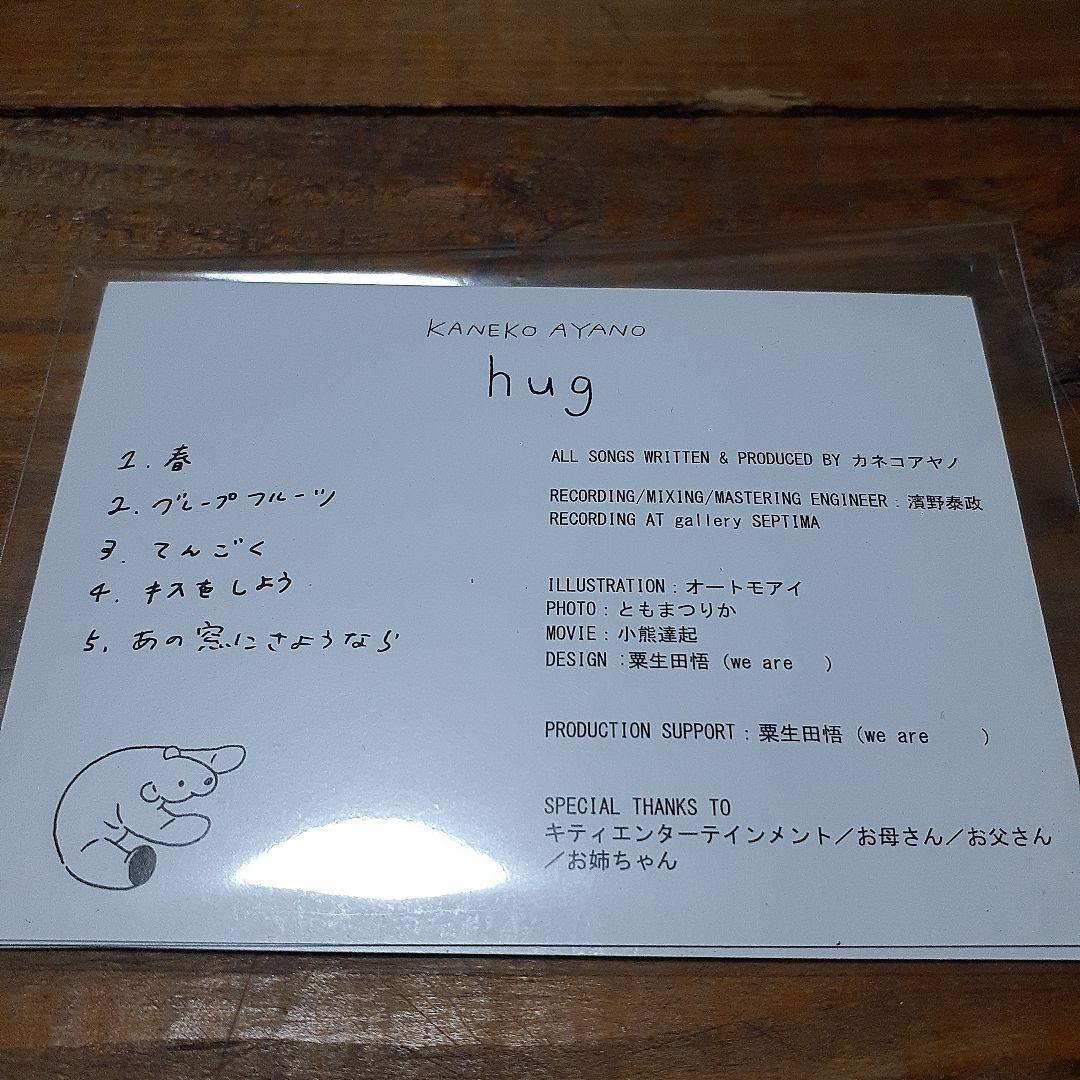 KANEKO AYANO
hug
1. 春
2. グレープフルーツ
3. てんごく
4. キスをしよう
5. あの窓にさようなら
ALL SONGS WRITTEN & PRODUCED BY カネコアヤノ
RECORDING/MIXING/MASTERING ENGINEER：濱野泰政
RECORDING AT gallery SEPTIMA
ILLUSTRATION：オートモアイ
PHOTO：ともまつりか
MOVIE：小熊達起
DESIGN：粟生田悟（we are　）
PRODUCTION SUPPORT：粟生田悟（we are　　）
SPECIAL THANKS TO
キティエンターテインメント／お母さん／お父さん
／お姉ちゃん